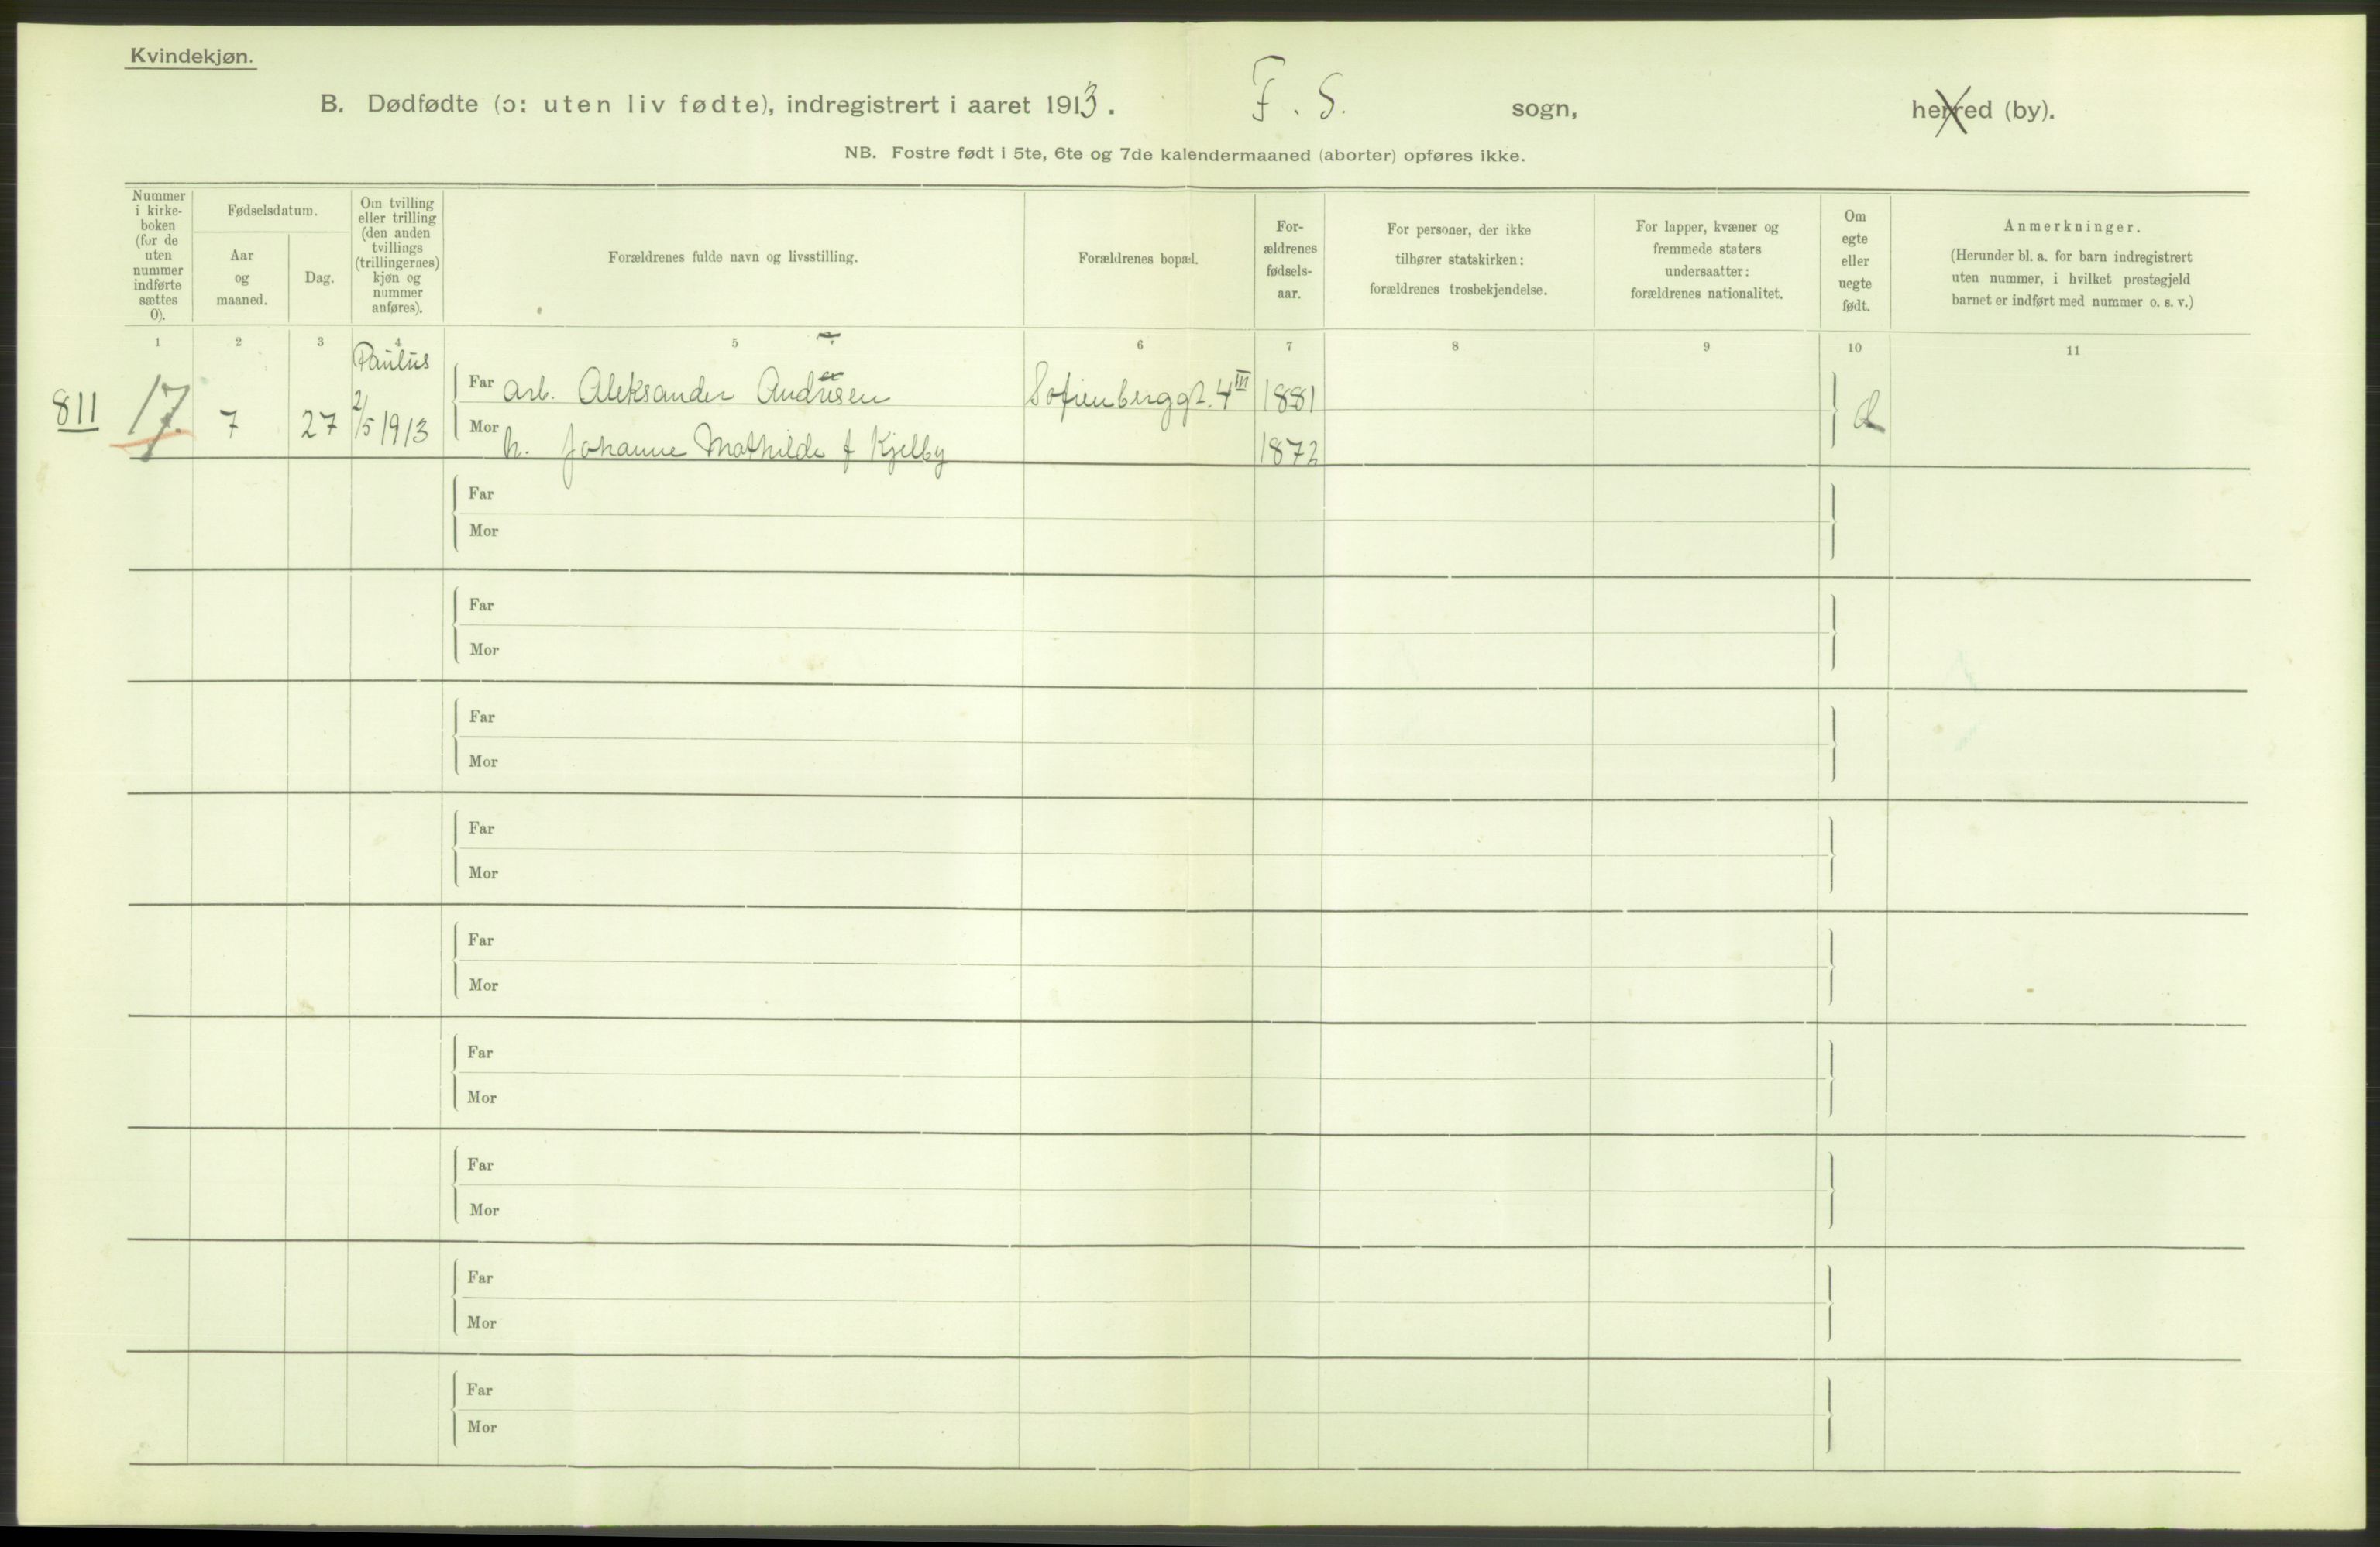 Kvindekjøn.
B. Dødfødte (ɔ: uten liv fødte), indregistrert i aaret 1913. F. S. sogn, herred (by).
NB. Fostre født i 5te, 6te og 7de kalendermaaned (aborter) opføres ikke.
Nummer i kirke- boken (for de uten nummer indførte sættes 0).
Fødselsdatum.
Aar og maaned.
Dag.
Om tvilling eller trilling (den anden tvillings (trillingernes) kjøn og nummer anføres).
Forældrenes fulde navn og livsstilling.
Forældrenes bopæl.
For- ældrenes fødsels- aar.
For personer, der ikke tilhører statskirken: forældrenes trosbekjendelse.
For lapper, kvæner og fremmede staters undersaatter: forældrenes nationalitet.
Om egte eller uegte født.
Anmerkninger.
(Herunder bl. a. for barn indregistrert uten nummer, i hvilket prestegjeld barnet er indført med nummer o. s. v.)
1 2 3 4 5 6 7 8 9 10 11
Paulus
811 17. 7 27 2/5 1913
Far arb. Aleksander Andresen Sofienberggt. 4 III 1881
Mor h. Johanne Mathilde f Kjelby 1872
Far
Mor
Far
Mor
Far
Mor
Far
Mor
Far
Mor
Far
Mor
Far
Mor
Far
Mor
Far
Mor